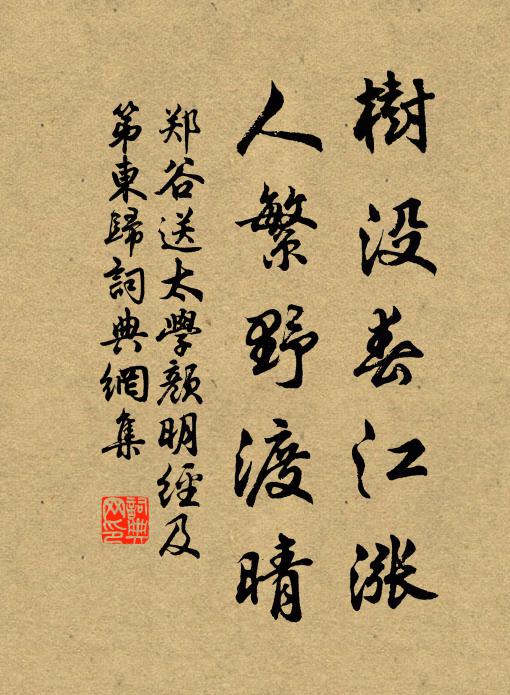 樹没春江漲
人繁野渡晴
郑谷送太學顔明經及
第東歸詞典網集
詞典
网印